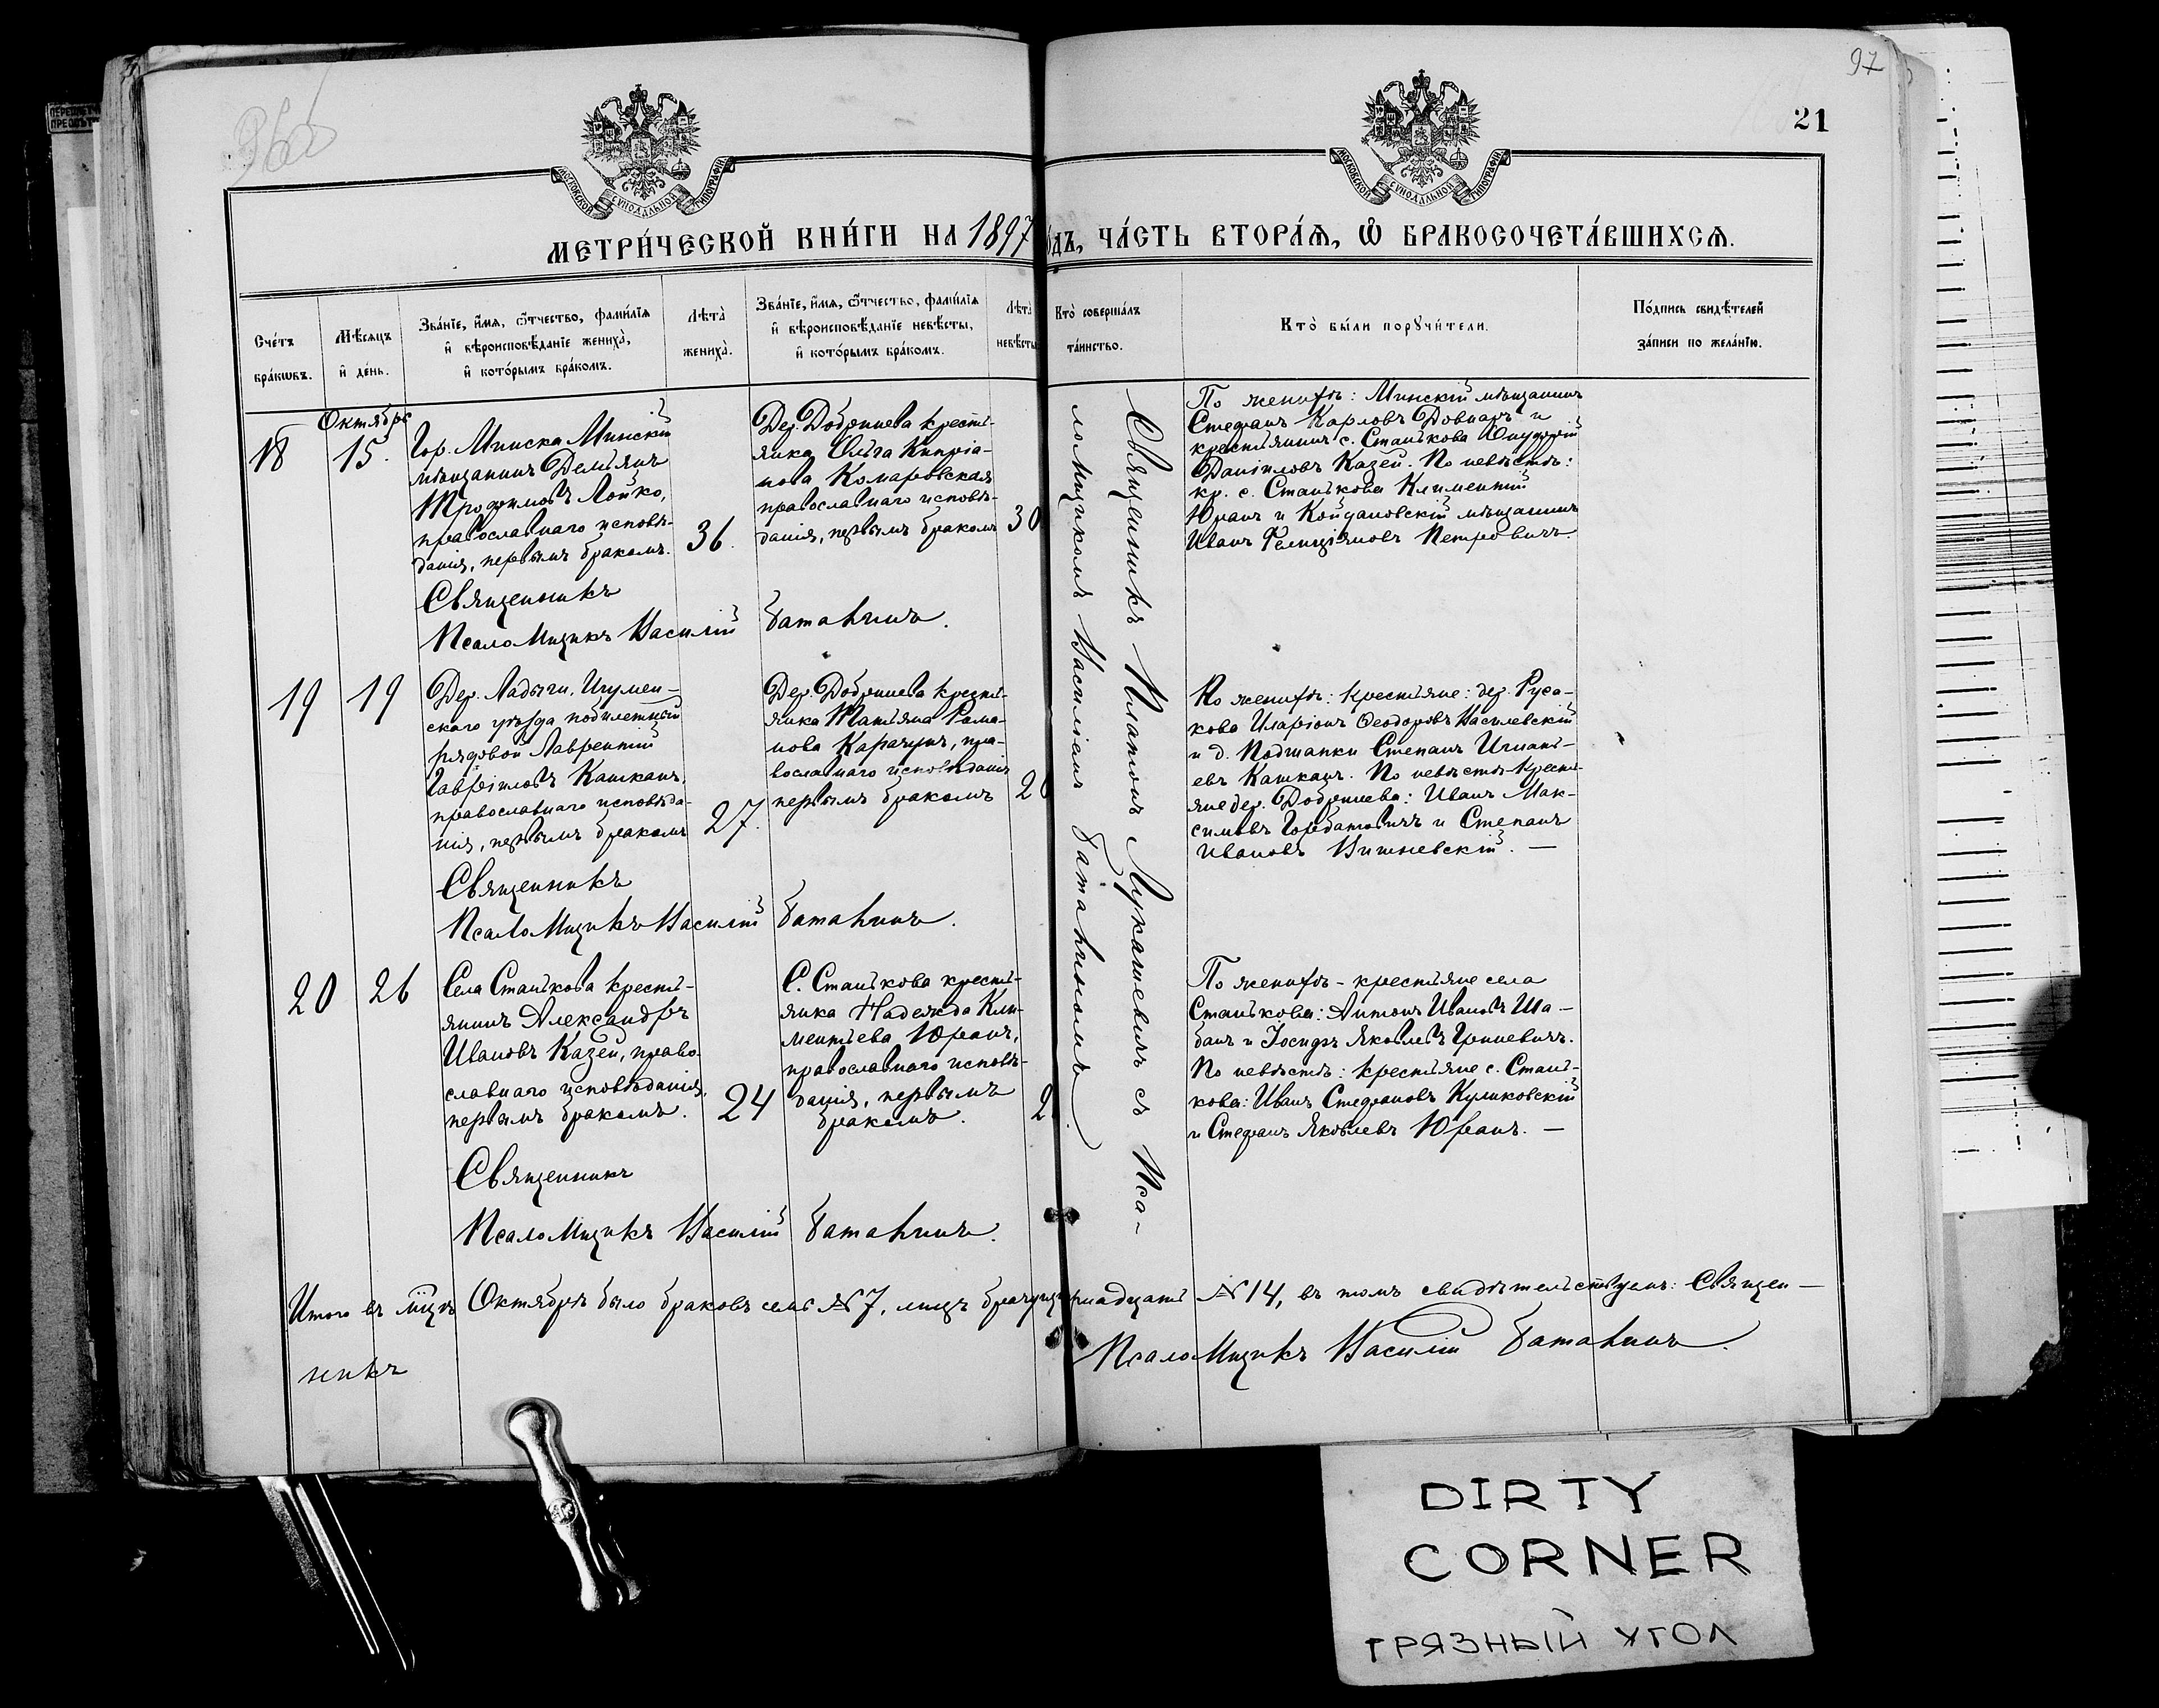 97
21
МОСКОВСКОЙ СѴНОДАЛЬНОЙ ТИПОГРАФІИ
МОСКОВСКОЙ СѴНОДАЛЬНОЙ ТИПОГРАФІИ
МЕТРИ́ЧЕСКОЙ КНИ́ГИ НА 1897
ЧА́СТЬ ВТОРА́Я, Ѡ БРАКОСОЧЕТА́ВШИХСЯ.
Сче́тъ бра́кѡвъ.
Мѣ́сяцъ и҆ де́нь.
Зва́нїе, и҆́мя, ѻ҆́тчество, фами́лїя и҆ вѣроисповѣ́данїе жениха̀, и҆ кото́рымъ бра́комъ.
Лѣта̀ жениха̀.
Зва́нїе, и҆́мя, ѻ҆́тчество, фами́лїя и҆ вѣроисповѣ́данїе невѣ́сты, и҆ кото́рымъ бра́комъ.
Лѣта̀ невѣ́сты
Кто̀ соверша́лъ та́инство.
Кто̀ бы́ли порꙋчи́тели.
По́дпись свидѣ́телей за́писи по жела́нїю.
Октябрь
18
15.
Гор. Минска Минскій
мѣщанинъ Демьянъ
Трофимовъ Лойко,
православнаго исповѣ-
данія, первымъ бракомъ.
36.
Дер. Добринева кресть-
янка Ольга Кипріа-
нова Комаровская
православнаго исповѣ-
данія, первымъ бракомъ
30
Священникъ Платонъ Лукашевичъ съ Пса-
ломщикомъ Василіемъ Батавинымъ
По женихѣ: Минскій мѣщанинъ
Стефанъ Карловъ Довнаръ и
крестьянинъ с. Станькова Онуфрій
Даніиловъ Казей. По невѣстѣ:
кр. с. Станькова Климентій
Юранъ и Койдановскій мѣщанинъ
Иванъ Фелиціяновъ Петровичъ.
Священникъ
Псаломщикъ Василій Батавинъ.
19
19
Дер. Ладыги, Игумен-
скаго уѣзда побилетный
рядовой Лаврентій
Гавріиловъ Кашканъ,
православнаго исповѣда-
нія, первымъ бракомъ
27.
Дер. Добринева кресть-
янка Татьяна Рома-
нова Карачунъ, пра-
вославнаго исповѣданія
первымъ бракомъ
По женихѣ: крестьяне: дер. Руса-
кова Иларіонъ Ѳеодоровъ Василевскій
и д. Подшапки Степанъ Игнать-
евъ Кашканъ. По невѣстѣ кресть-
яне дер. Добринева: Иванъ Мак-
симовъ Горбатовичъ и Степанъ
Ивановъ Вишневскій. —
Священникъ
Псаломщикъ Василій Батавинъ.
20
26
Села Станькова кресть-
янинъ Александръ
Ивановъ Казей, право-
славнаго исповѣданія,
первымъ бракомъ.
24
С. Станькова кресть-
янка Надежда Кли-
ментьева Юранъ,
православнаго исповѣ-
данія, первымъ
бракомъ.
По женихѣ - крестьяне села
Станькова: Антонъ Ивановъ Ша-
банъ и Іосифъ Яковлевъ Гриневичъ.
По невѣстѣ: крестьяне с. Стань-
кова: Иванъ Стефановъ Куликовскій
и Стефанъ Яковлевъ Юранъ. —
Священникъ
Псаломщикъ Василій Батавинъ.
Итого въ мцѣ Октябрѣ было браковъ семь № 7, лицъ № 14, въ томъ свидѣтельствуемъ: Священ-
никъ
Псаломщикъ Василій Батавинъ.
DIRTY
CORNER
ГРЯЗНЫЙ УГОЛ